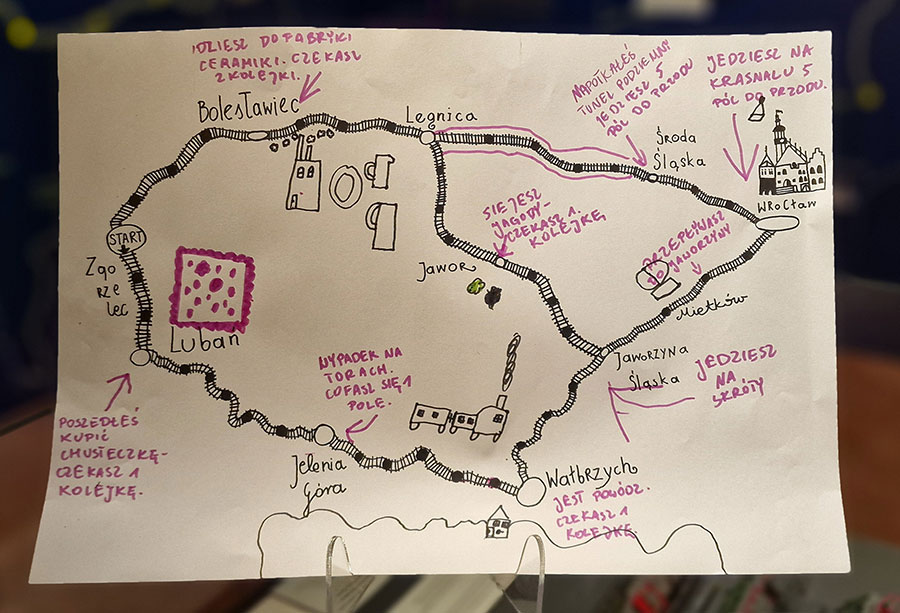 IDZIESZ DO FABRYKI
CERAMIKI. CZEKASZ
2 KOLEJKI.
Bolesławiec
Legnica
NAPOTKAŁEŚ
TUNEL PODZIEMNY
JEDZIESZ 5
PÓL DO PRZODU
JEDZIESZ NA
KRASNALU 5
PÓL DO PRZODU.
Środa
Śląska
WROCŁAW
START
Zgo
rze
lec
SIĘ JESZ
JAGODY-
CZEKASZ 1
KOLEJKĘ
JAWOR
PRZEPŁYWASZ
DO JAWORZYNY
Mietków
Lubań
WYPADEK NA
TORACH.
COFASZ SIĘ 1
POLE.
JAWORZYNA
ŚLĄSKA
JEDZIESZ
NA
SKRÓTY
POSZEDŁEŚ
KUPIĆ
CHUSTECZKĘ-
CZEKASZ 1
KOLEJKĘ.
Jelenia
Góra
Wałbrzych
JEST POWÓDŹ.
CZEKASZ 1
KOLEJKĘ.